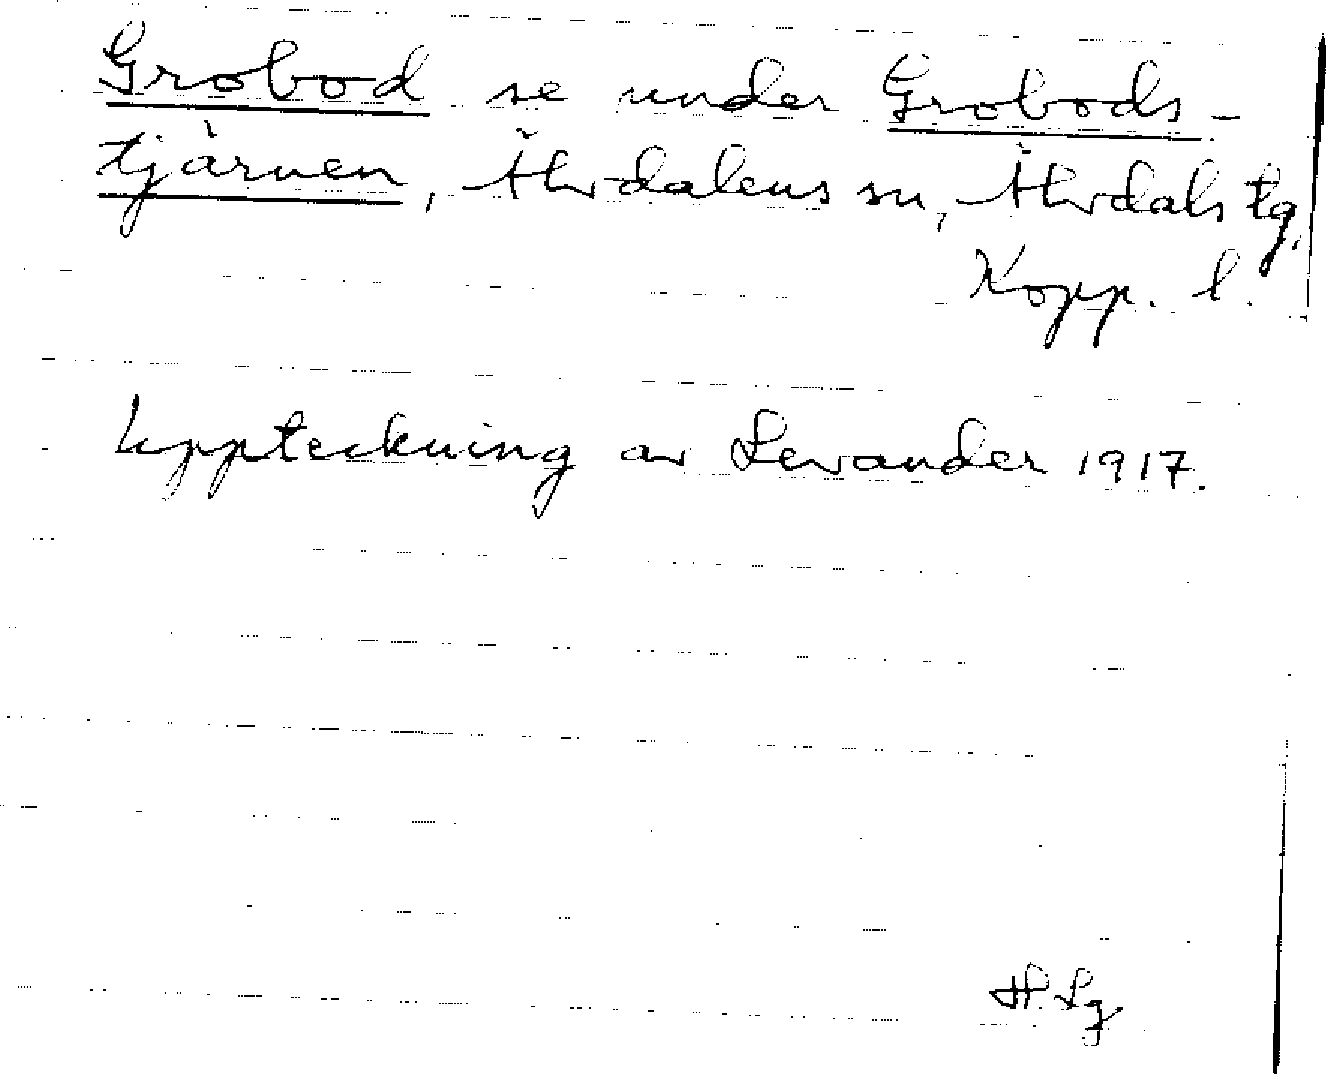 Grobod se under Grobods-
tjärnen, Älvdalens sn, Älvdals tg,
Kopp. l.
Uppteckning av Levander 1917.
H. Lg